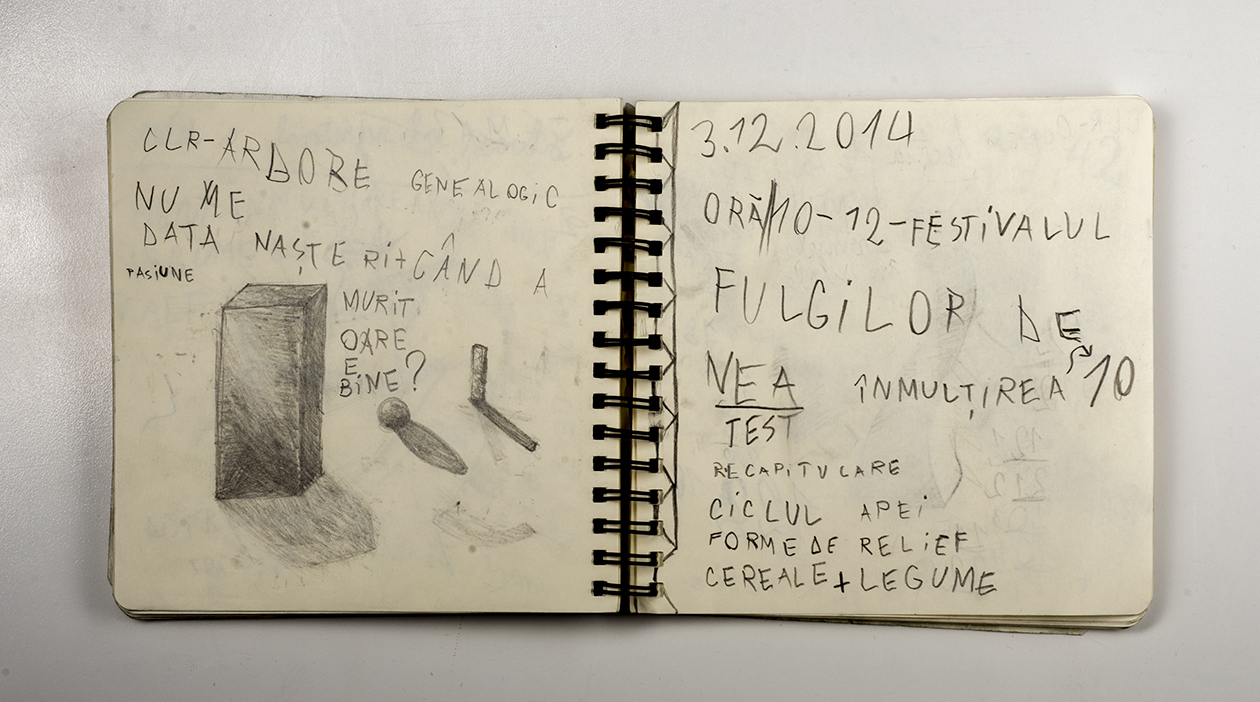 CLR-ARBORE GENEALOGiC
NUME
DATA NAȘTERiT CÂND A
PASiUNE
MURiT
OARE
E
BiNE?
3.12.2014
ORĂ 10-12-FESTiVALUL
FULGiLOR DE
NEA ÎNMULȚIREA 10
TEST
RECAPiTULARE
CiCLUL APEi
FORME DE RELiEF
CEREALE+LEGUME